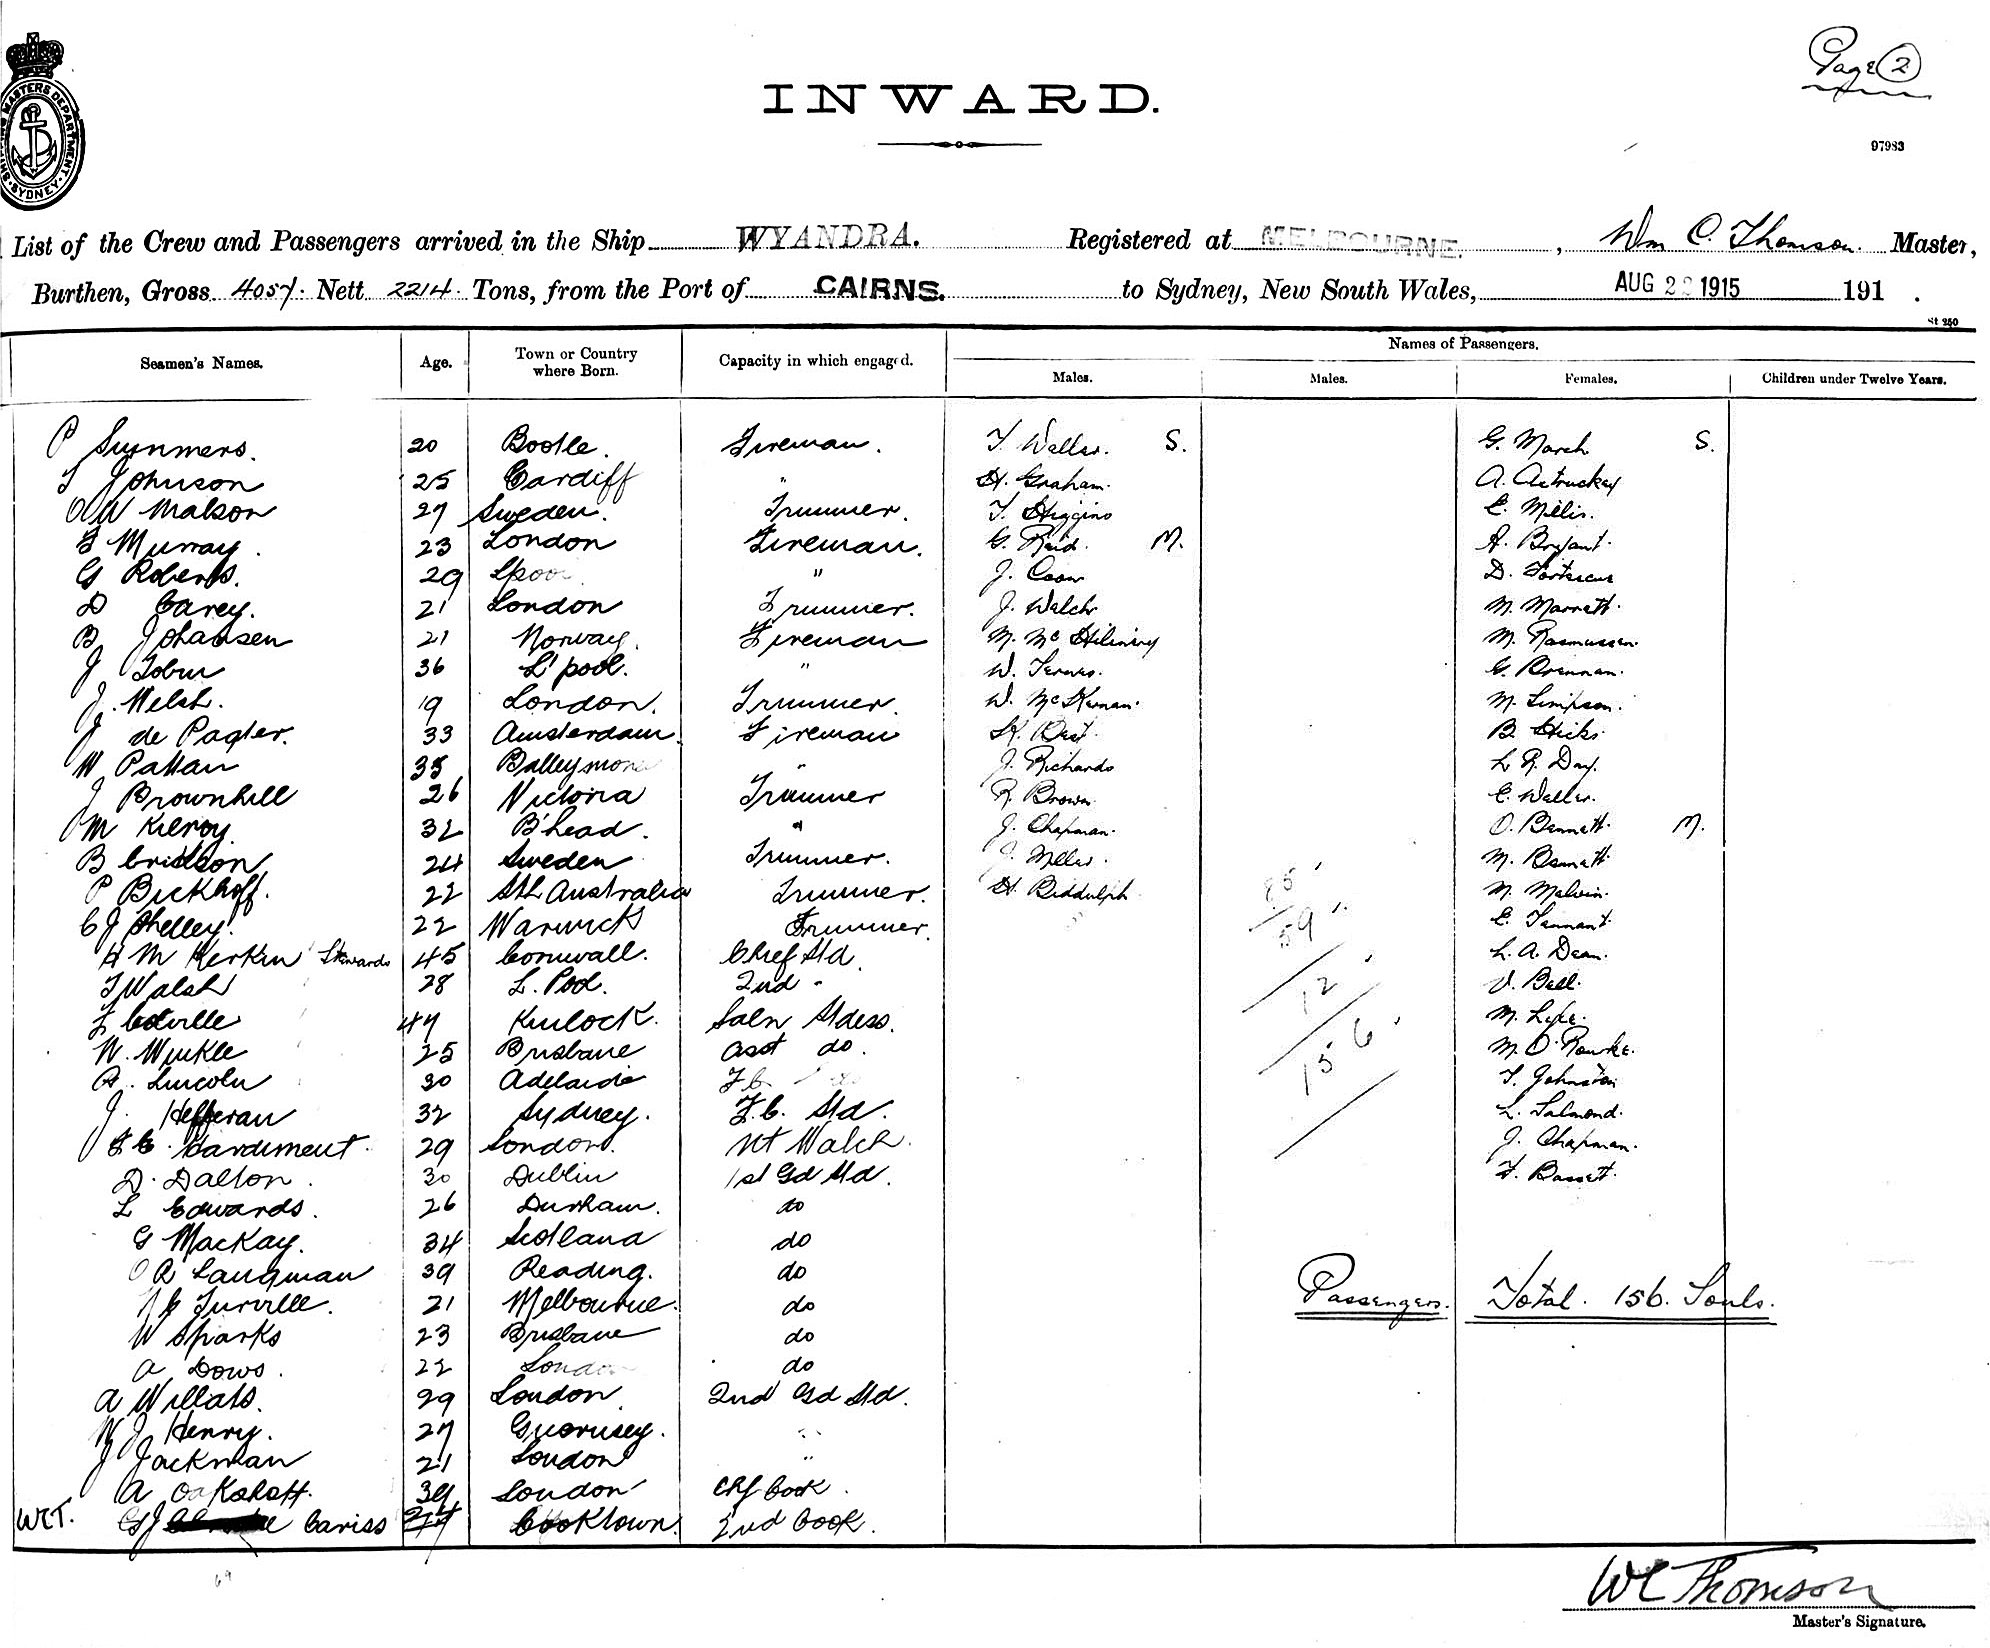 Page 2
INWARD.
97983
SHIPPING MASTERS DEPARTMENT. SYDNEY.
List of the Crew and Passengers arrived in the Ship WYANDRA. Registered at MELBOURNE. , Wm C. Thomson. Master,
Burthen, Gross 4057. Nett 2214. Tons, from the Port of CAIRNS. to Sydney, New South Wales, AUG 22 1915 191 .
St 250
Seamen's Names. Age. Town or Country where Born. Capacity in which engaged. Names of Passengers.
Males. Males. Females. Children under Twelve Years.
P Summers. 20 Bootle. Fireman. T. Waller. S. G. March S.
T Johnson 25 Cardiff " H. Graham. A.
O W Malson 27 Sweden. Trimmer. T. Higgins E. Millis.
F Murray. 23 London Fireman. G. Reid. M. A. Bryant.
G Roberts. 29 Lpool " J. D. Fortescue
D Carey. 21 London Trimmer. J. Welch M. Marrett.
B Johansen 21 Norway. Fireman M. M. Rasmussen.
J Tobin 36 L'pool. " W. G. Brennan.
J. Welsh. 19 London. Trimmer. W. McKernan. M. Simpson.
J de Pagter. 33 Amsterdam. Fireman K. Best. B. Hicks.
W Pattan 35 " J. Richards L. R. Day.
J Brownhill 26 Victoria Trimmer R. Brown. E. Waller.
M Kilroy. 32 B'head. " J. Chapman. O. Bennett. M.
B 24 Sweden Trimmer. J. M. Bennett.
P Bickhoff. 22 Sth Australia Trimmer. H. Biddulph. M. Melvin.
C J Shelley. 22 Warwick Trimmer. E. Tennant.
H M Kerkin Stewards 45 Cornwall. Chief Std. L. A. Dean.
T Walsh 28 L. Pool. 2nd " V. Bell.
F Colville 47 Kinlock. Saln Stdess. M.
N. Winkle 25 Brisbane Asst do. M. O'Rourke.
A. Lincoln 30 Adelaide F.C. T. Johnston
J. Hefferan 32 Sydney. F.C. Std. L. Salmond.
F C. Hardiment. 29 London. Nt Watch. J. Chapman.
D. Dalton. 30 Dublin 1st Gd Std. F. Basset.
L Edwards. 26 Durham. do
G MacKay. 34 Scotland do
A Langman 39 Reading. do
Turville. 21 Melbourne. do
Passengers. Total. 156. Souls.
W Sparks 23 Brisbane do
A Dows. 22 London do
A Willats. 29 London 2nd Gd Std.
W J Henry. 27 Guernsey. "
J Jackman 21 London "
A Oakshott. 39 London Chf Cook.
WCT. G J Cariss Cooktown. 2nd Cook.
85
59
12
156
69
WC Thomson
Master's Signature.